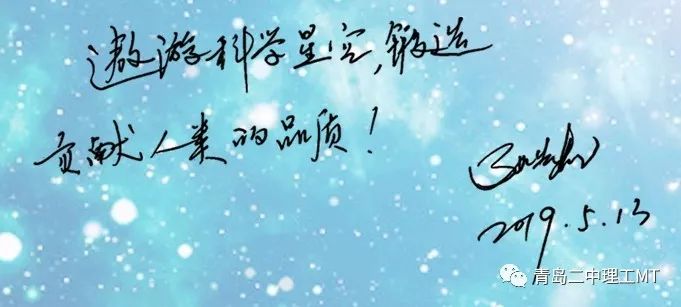 遨游科学星空,锻造
贡献人类的品质!
2019.5.13
青岛二中理工MT